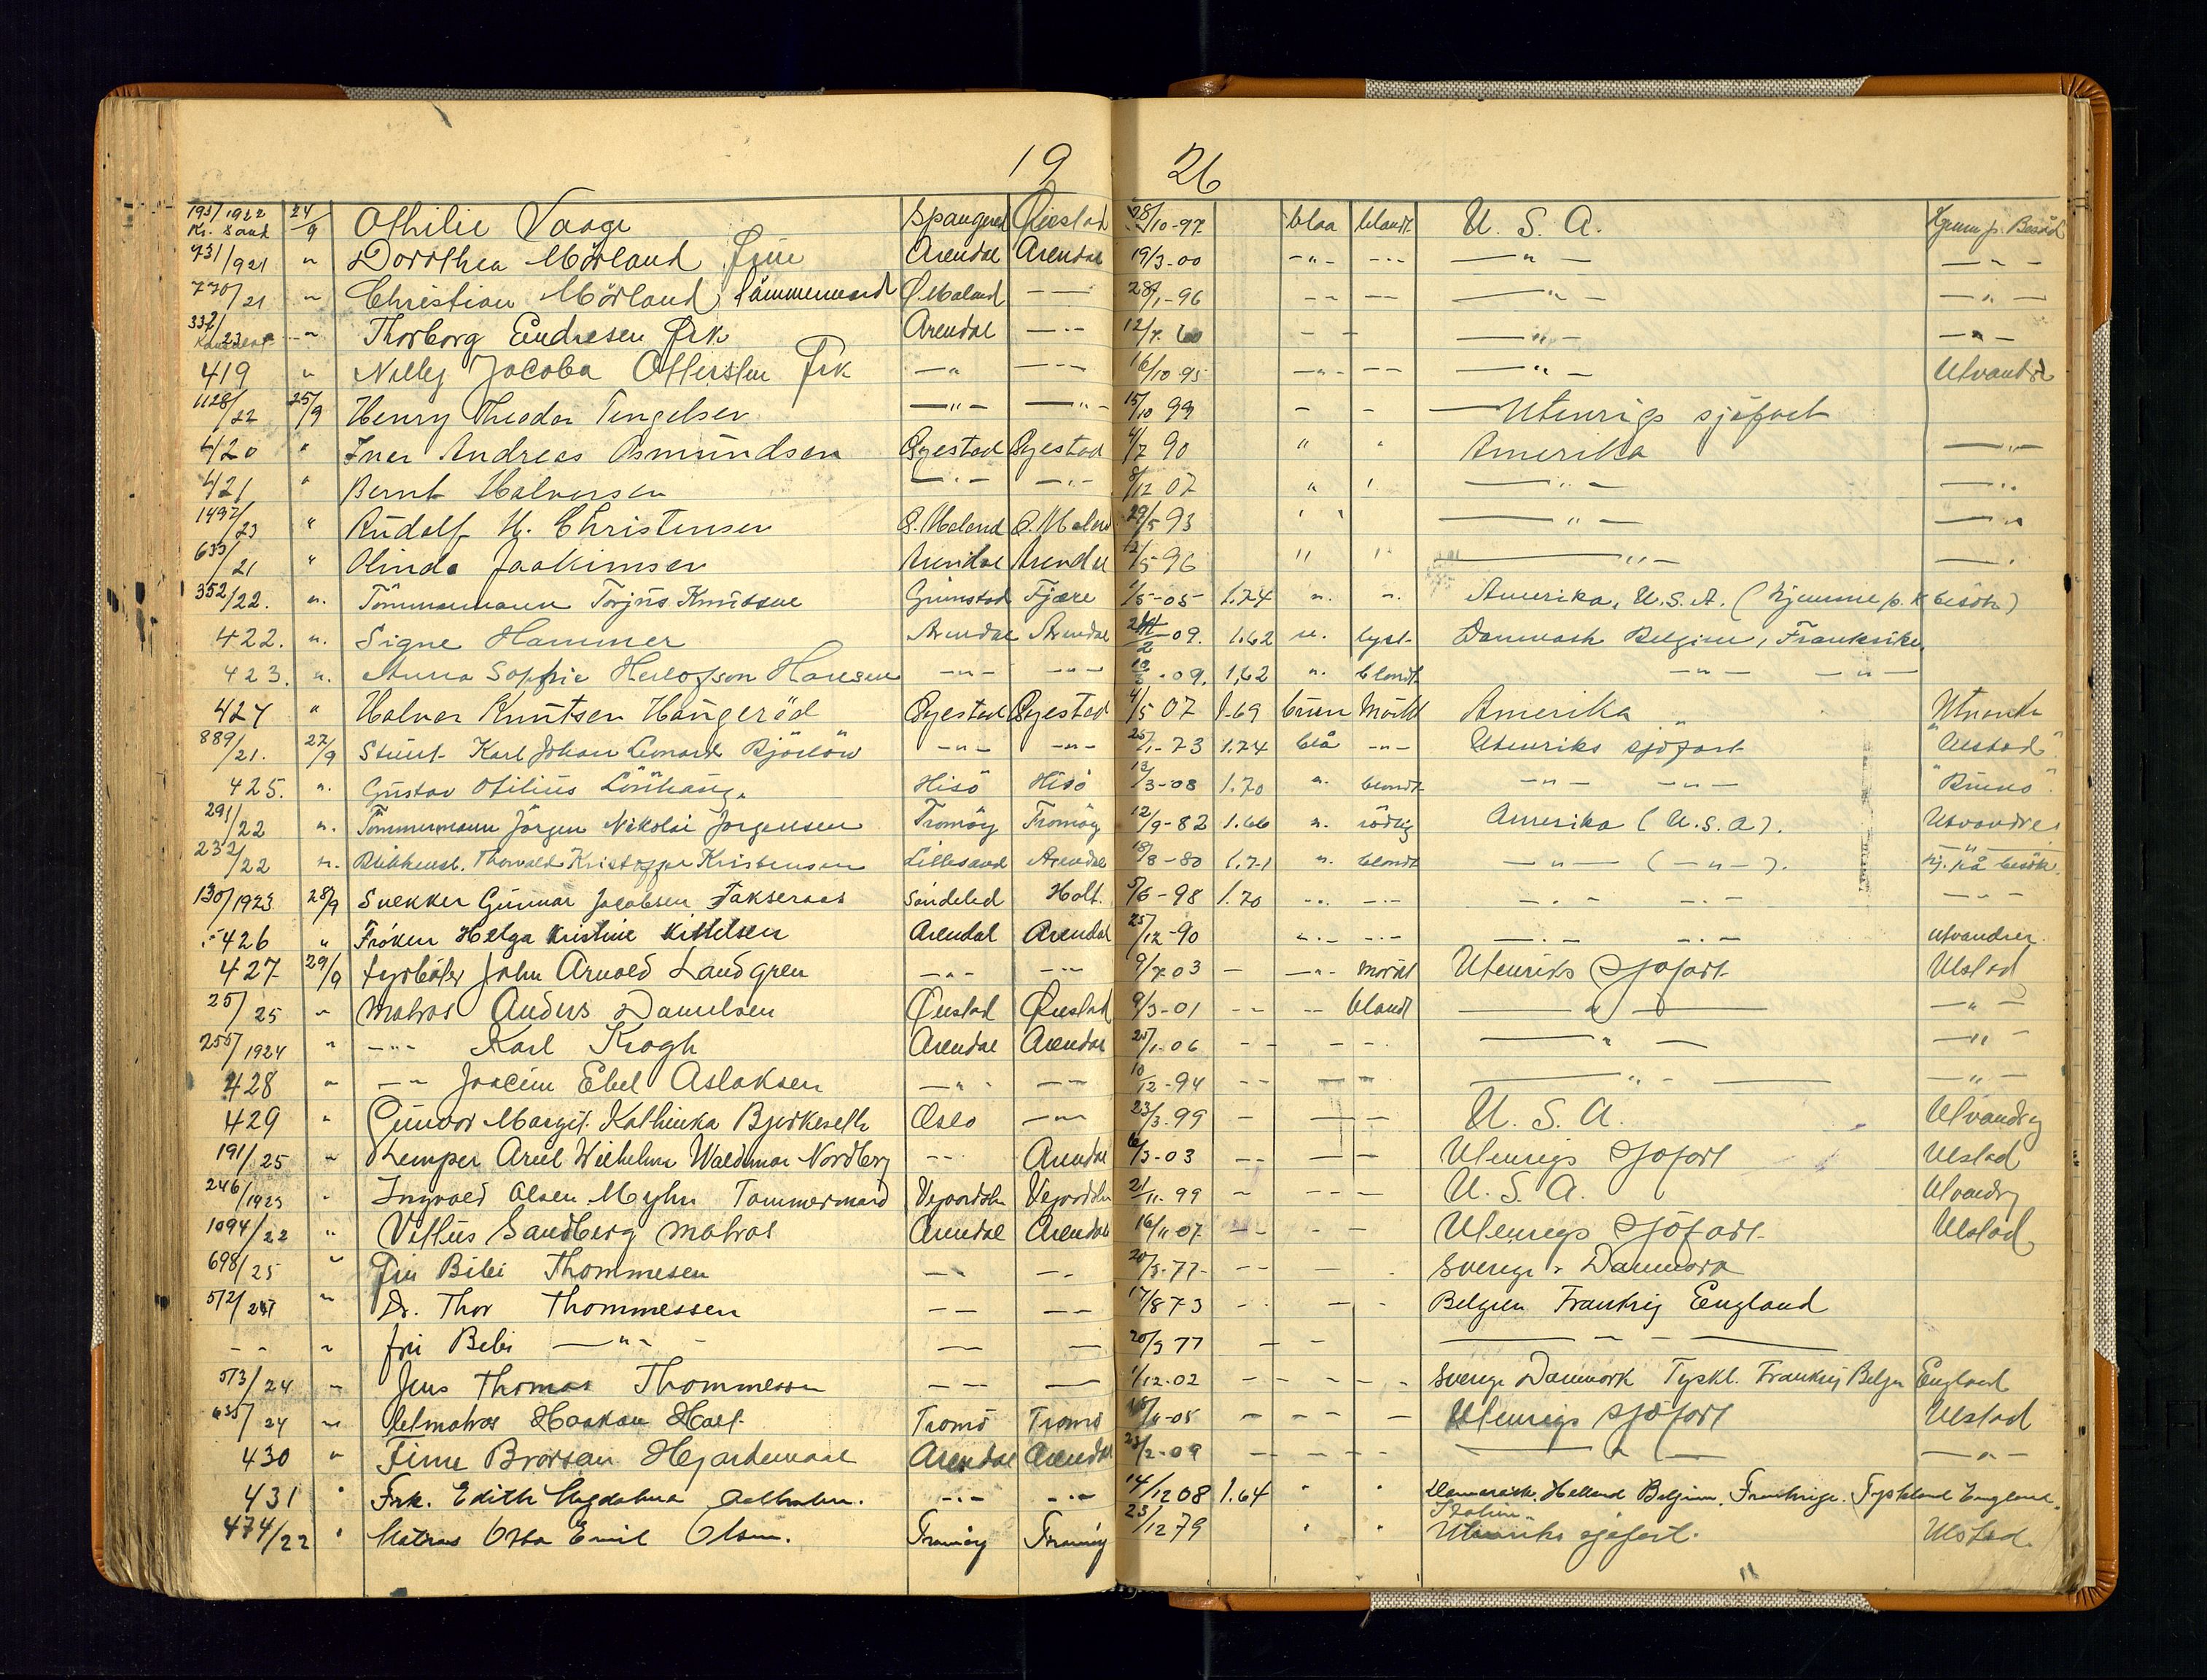 19 26
193/1922 Kr. Sand 24/9 Othilie Vaage Spangereid Öiestad 28/10-97 blaa blandt U. S. A. Hjemme p. Besök
931/921 " Dorothea Mörland Frue Arendal Arendal 19/3-00 -"- --- -"- - " -
770/21 " Christian Mörland, tömmermand Ö Moland -- 28/1-96 -- -- -"- - " -
332/23 " Thorborg Endresen Frk Arendal -"- 12/7. 00 - - -"- - " -
419 " Nelly Jacoba Ottersten Frk -"- --- 16/10 95 -"- - -"- Utvandr
1128/22 25/9 Henry Theodor Tengelsen -"- -"- 15/10 99 - - Utenrigs sjöfart
420 " Iver Andreas Osmundsen Öyestad Öyestad 4/7 90 " " Amerika -"-
421 " Bernt Halvorsen -"- -"- 8/12 07 " " -"- -"-
1497/23 " Rudolf H. Christensen Ö. Moland Ö. Moland 29/5 93 " " -"- -"-
635/21 " Olinda Joakimsen Arendal Arendal 12/5 96 " " -"- -"-
352/22. ". Tömmermann Torjus Knutsen Grimstad Fjære 1/5-05 1.74 ". ". Amerika, U.S.A. (hjemme p. besök)
422. ". Signe Hammer Arendal Arendal 2-09. 1.62 ". lyst. Danmark Belgien, Frankrike,
423. ". Anna Sophie Herlofson Hansen -"- -"- -09. 1,62 ". blondt -"- -"-
424 " Halvor Knutsen Haugeröd Öyestad Öyestad 4/5 07 1.69 brun mörkt Amerika " Utvandr
889/21. 27/9 Stuert Karl Johan Leonard Björlöw -"- -"- 25/1-73 1.74 blå -"- Utenriks sjöfart "Ulstad"
425. ". Gustav Otilius Lönhaug. Hisö Hisö 13/3-08 1.70 ". blondt -"- -"- "Bruno"
291/22 ". Tömmermann Jörgen Nikolai Jörgensen Tromöy Tromöy 12/9-82 1.66 ". rödlig Amerika (U.S.A). Utvandrer
232/22 ". Blikkensl. Thorvald Kristoffer Kristensen Lillesand Arendal 18/8-80 1.71 ". blondt -"- (-"-). hj. på besök.
130/1923 28/9 Snekker Gunnar Jacobsen Fakseraas Söndeled Holt. 5/6-98 1.70 -.. -.- -.- -.- - - -
426 " Fröken Helga Kristine Kittelsen Arendal Arendal 25/12-90 -.- -.- -.- -.- utvandrer.
427 29/9 Fyrböter John Arnold Landgren -"- -"- 9/7.03 - -"- mörkt Utenriks Sjöfart Ulstad
25/25 " Matros Anders Danielsen Öiestad Öiestad 9/3-01 -- -- blandt -"- -"-
255/1924 " -"- Karl Krogh Arendal Arendal 25/1.06 -- -- -"- -"-
428 " -"- Joacim Ebel Aslaksen -"- -- 10/12-94 -- -- -"- -"-
429 " Gunvor Margit. Kathinka Bjerkeseth Oslo -"- 23/3.99 - -- U. S. A. Utvandrg
191/25 " Lemper Arul Wilhelm Waldemar Nordberg -- Arendal 6/3-03 -- -- Utenrigs Sjöfart Ulstad
246/1923 " Ingvald Olsen Myhr Tømmermand Vegaardshe Vegaardshe 21/11. 99 - --- U. S. A. Utvandrg
1094/22 " Vetlius Sandberg Matros Arendal Arendal 16/11 07. -- - - Utenrigs Sjöfart Ulstad
698/25 " Fru Bibi Thommesen -- -- 20/3-77- -- - Sverige " Danmark
512/ " Dr. Thor Thommessen -- -- 17/8 73 -- - - Belgien Frankrig England
-- " Fru Bebi -"- -- - 20/3 77 - - - - -
573/24 " Jens Thomas Thommessen -- -- 1/12-02 - - - - Sverige Danmark Tyskl. Frankrig Belgn England
635/24 " letmatros Haakon Holt Tromö Tromö 18/11-05 - -- - Utenrigs Sjöfart Ulstad
430 " Finn Brorsan Hejardemaal Arendal Arendal 23/2-09 - - - - -"- -"-
431 " Frk. Edith Magdalena -.- -.- 14/12 08 1.64 " " Danmark. Holland Belgien. Frankrige. Tyskland England. Italien
474/22 " Matros Otto Emil Olsen. Tromöy Tromöy 23/12 79 " " Utenriks sjöfart. Ulstad.